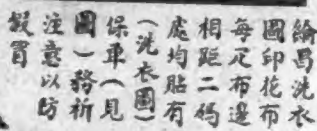 綸昌洗衣
圖印花布
每疋布邊
相距二碼
處均貼有
(洗衣圖)
保單(見
圖)務祈
注意以防
假冒